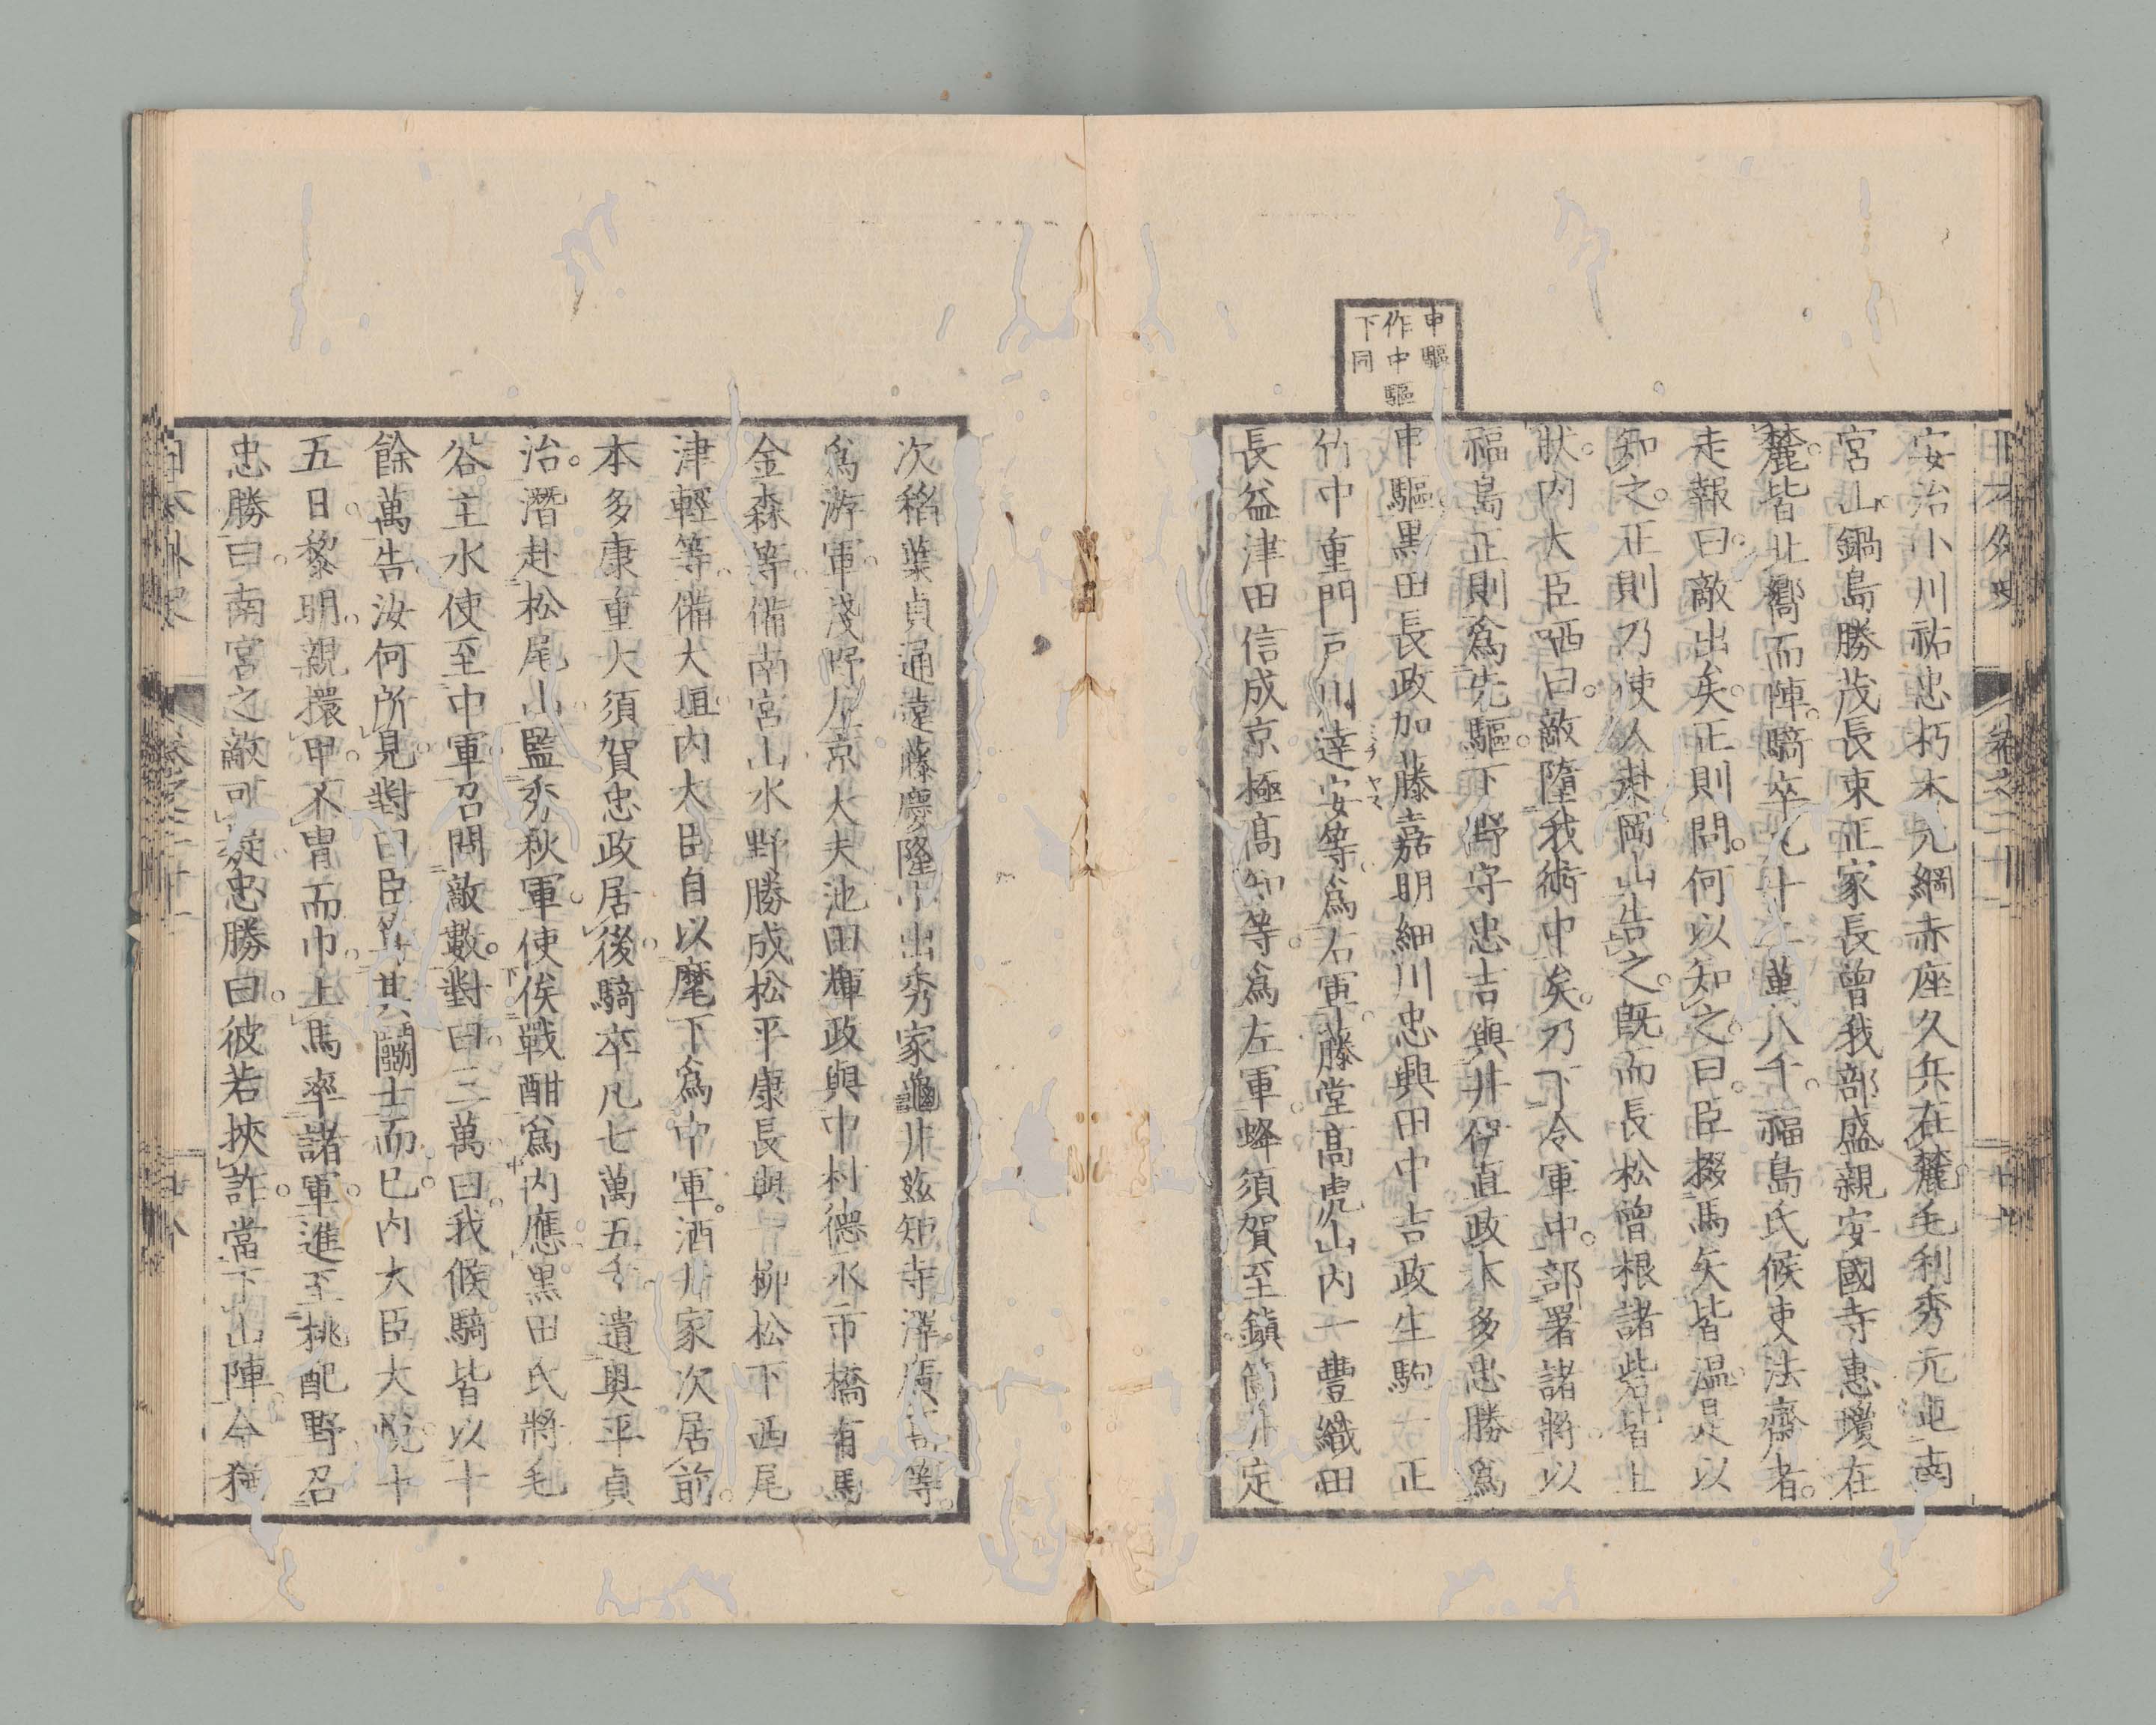 日本外史 卷之二十一
申驅
作中驅
下同
安治小川祐忠朽木元綱赤座久兵在麓毛利秀元屯南
宮山鍋島勝茂長束正家長曾我部盛親安國寺惠瓊在
麓皆北嚮而陣騎卒凡十二萬八千福島氏候吏法齋者
走報曰敵出矣正則問何以知之曰臣掇馬矢皆溫是以
知之正則乃使人走岡山告之既而長松曾根諸砦皆上
狀內大臣哂曰敵墮我術中矣乃下令軍中部署諸將以
福島正則爲先驅下野守忠吉與井伊直政本多忠勝爲
申驅黑田長政加藤嘉明細川忠興田中吉政生駒 正
竹中重門戶川達安等爲右軍藤堂高虎山內一豐織田
ミチヤス
長益津田信成京極高知等爲左軍蜂須賀至鎭筒井定
次稻葉貞通遠藤慶隆小出秀家龜井茲矩寺澤廣高等
爲游軍淺野左京大夫池田輝政與中村德永市橋有馬
金森等備南宮山水野勝成松平康長與一柳松下西尾
津輕等備大垣內大臣自以麾下爲中軍酒井家次居前
本多康重大須賀忠政居後騎卒凡七萬五千遣奧平貞
治潛赴松尾山監秀秋軍使俟戰酣爲內應黑田氏將毛
谷主水使至中軍召問敵數對曰三萬曰我候騎皆以十
餘萬告汝何所見對曰臣算其鬭士而已內大臣大悅十
五日黎明親擐甲不冑而巾上馬率諸軍進至桃配野召
忠勝曰南宮之敵可疑忠勝曰彼若挾詐當下山陣今猶
日本外史 卷之二十一 廿八